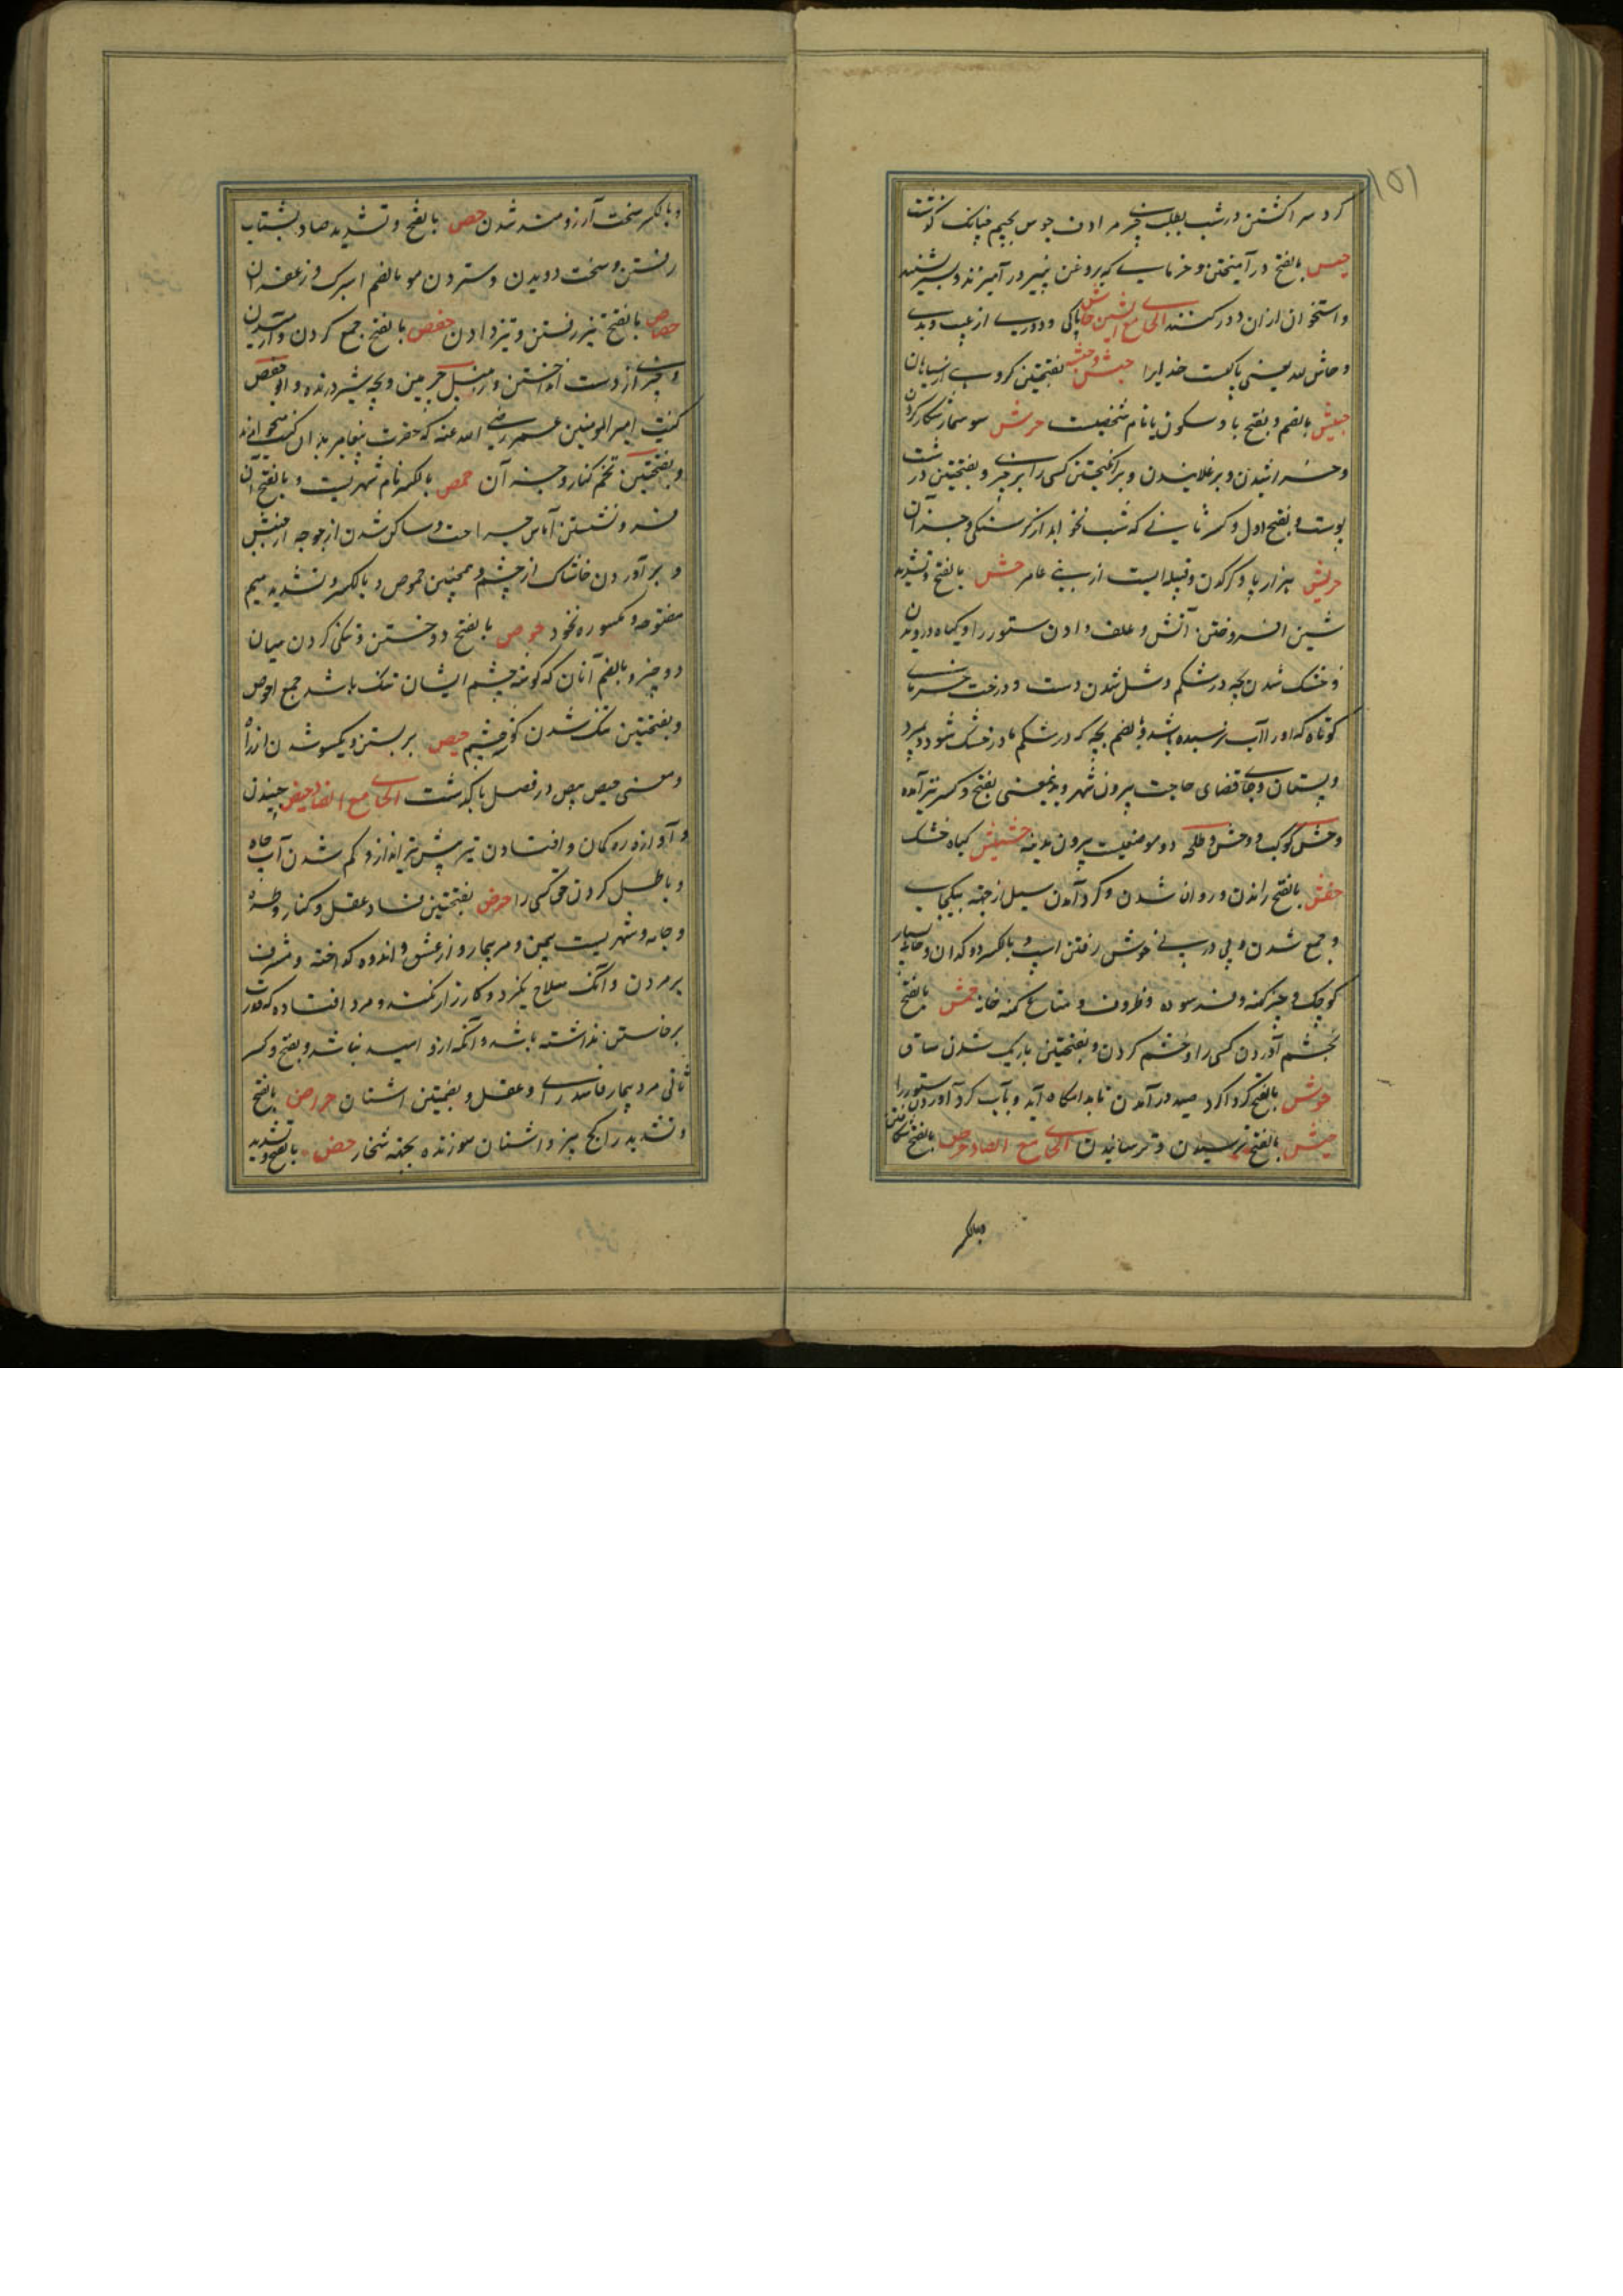 ۱۵۱
کرد سرا کشتن در شب بطلب چیزی مرادف جوس بجیم چنانک کذشت
حیس بالفتح در آمیختن و خرمایی که بروغن پنیر در آمیزند و بسیر شند
و استخوان از ان دور کنند الحاء مع الشین حاش پاکی و دوری از عیب و بدی
و حاش لله یعنی پاکست خدایرا حبش و حبشه بفتحتین کروهی از سیاهان
حبیش بالضم و بفتح با و سکون یا نام شخصیست حرش سوسمار شکار کردن
و خراشیدن و برغلانیدن و بر انکیختن کسی را بر چیزی و بفتحتین درشت
پوست و بفتح اول و کسر ثانی که شب نخوابد از کرسنکی و جز آن
حریش هزار پا و کرکدن و قبیله ایست از بنی عامر حش بالفتح و تشدید
شین افروختن آتش و علف دادن ستور را و کیاه درویدن
و خشک شدن بچه در شکم و شل شدن دست و درخت خرمای
کوتاه که او را آب نرسیده باشد و بالضم بچه که در شکم مادر خشک شود و بمیرد
و بستان و جای قضای حاجت بیرون شهر و بدینمعنی بفتح و کسر نیز آمده
و حش کوکب و حش و طلحه دو موضعیست بیرون مدینه حشیش کیاه خشک
حفش بالفتح راندن و روان شدن و کرد آمدن سیل از جهته بیکجای
و جمع شدن و پی در پی خوش رفتن اسپ و بالکسر دوکدان و خانه بسیار
کوچک و چیز کهنه و فرسوده و ظروف و متاع کهنه خانه حمش بالفتح
بخشم آوردن کسی را و خشم کردن و بفتحتین باریک شدن ساق
حوش بالفتح کرداکرد صید در آمدن تا بدامکاه آید و بآب کرد آوردن ستور را
حیش بالفتح ترسیدن و ترسانیدن الحاء مع الصاد حرص بالفتح شکافتن
و بالکسر
و بالکسر سخت آرزومند شدن حص بالفتح و تشدید صاد بشتاب
رفتن و سخت دویدن و ستردن مو بالضم اسپرک و زعفران
حصاص بالفتح تیز رفتن و تیز دادن حفص بالفتح جمع کردن و
و چیزی از دست انداختن و زنبیل چرمین و بچه شیر درنده و ابو حفص
کنیت امیر المومنین عمر رضی الله عنه که حضرت پیغامبر بدان کنیت میخواندند
و بفتحتین تخم کنار و جز آن حمص بالکسر نام شهریست و بالفتح
فرو نشستن آماس جراحت و ساکن شدن ارجوحه از جنبش
و برآوردن خاشاک از چشم و همچنین حموص و بالکسر و تشدید میم
مفتوحه و مکسوره نخود حوص بالفتح دوختن و تنکی کردن میان
دو چیز و بالضم آنان که کوشه چشم ایشان تنک باشد جمع احوص
و بفتحتین تنک شدن کوشه چشم حیص بر بستن و یکسو شدن از راه
و معنی حیص بیص در فصل با کذشت الحاء مع الضاد حبض جنبیدن
و آواز زه کمان و افتادن تیر پیش تیرانداز و کم شدن آب چاه
و باطل کردن حق کسی را حرض بفتحتین فساد عقل و کنار
و جامه و شهریست بیمن و مرد بیمار و از عشق و اندوه کداخته و مشرف
بر مردن و آنکه سلاح نکیرد و کارزار نکند و مرد افتاده که قدرت
برخاستن نداشته باشد و آنکه ازو امید نباشد و بفتح و کسر
ثانی مرد بیمار فاسد رای و عقل و بضمتین اشنان حراض بالفتح
و تشدید را کچ پز و اشنان سوزنده بجهته شخار حض بالفتح و تشدید